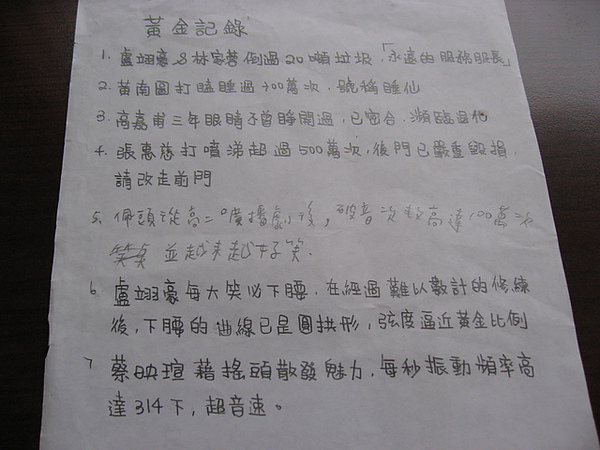 黃金記錄
1. 盧翊豪&林家薈倒過20噸垃圾,「永遠的服務股長」
2. 黃南圖打瞌睡過700萬次,號稱睡仙
3. 高嘉甫三年眼睛不曾睜開過,已密合.瀕臨退化
4. 張惠慈打噴涕超過500萬次,後門已嚴重毀損.
請改走前門
5. 佩頭從高二"廣播劇"後,破音次數高達100萬次
並越來越好笑.
6. 盧翊豪每大笑必下腰.在經過難以數計的修練
後,下腰的曲線已是圓拱形,弦度逼近黃金比例
7. 蔡映瑄藉搖頭散發魅力,每秒振動頻率高
達314下,超音速。